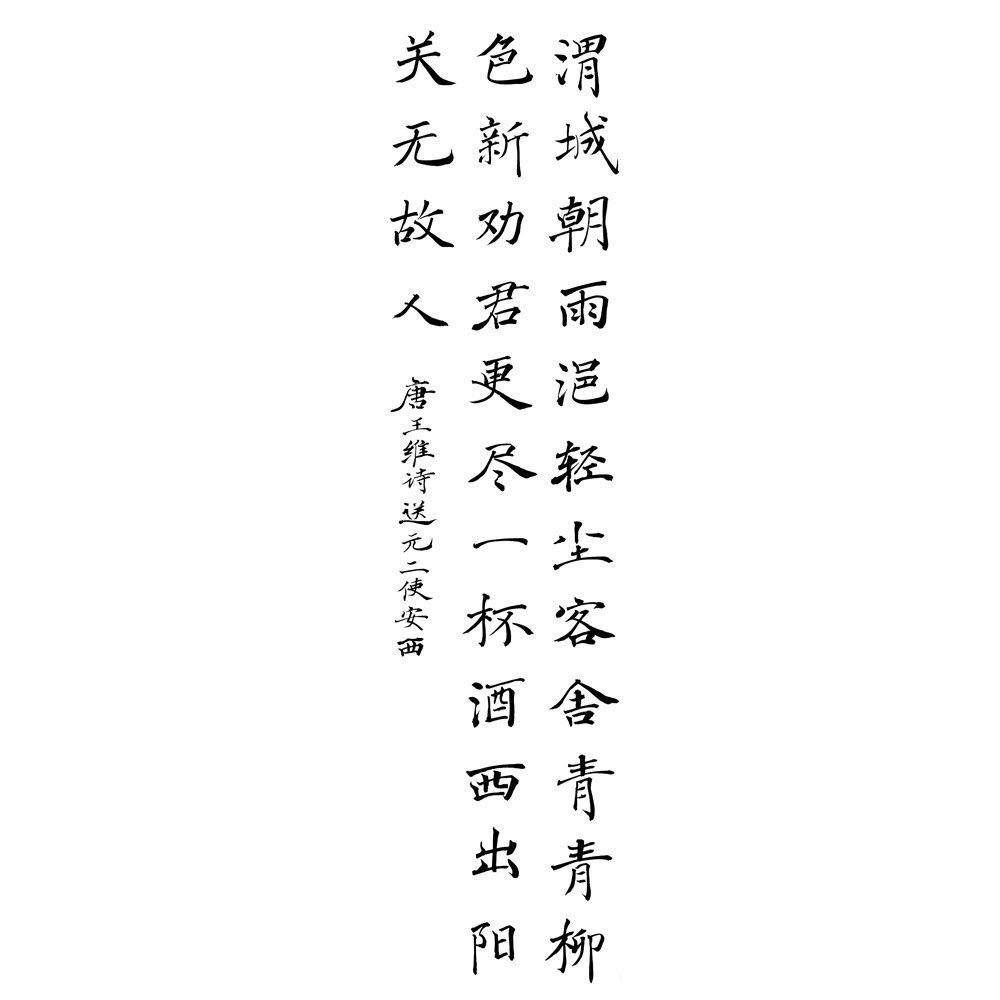 渭城朝雨浥轻尘客舍青青柳
色新劝君更尽一杯酒西出阳
关无故人
唐王维诗送元二使安西